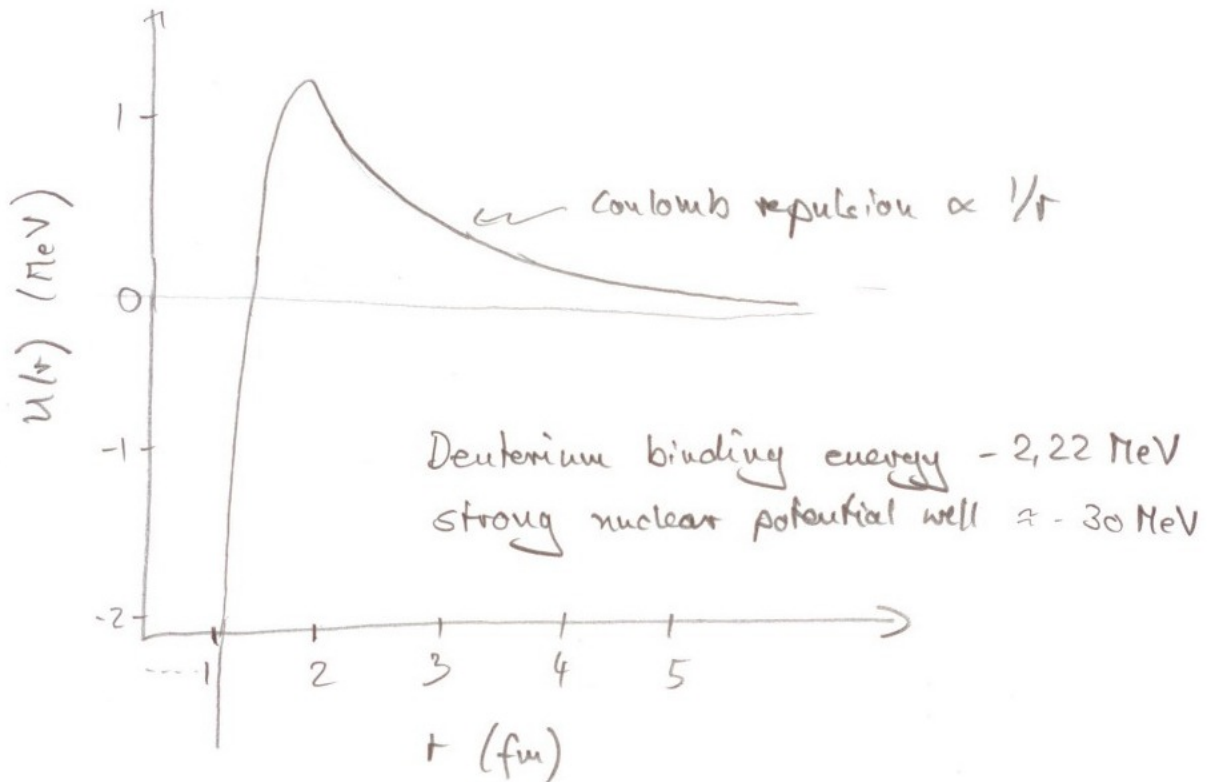 1
U(r) (MeV)
0
Coulomb repulsion ∝ 1/r
-1
Deuterium binding energy - 2,22 MeV
strong nuclear potential well ≈ - 30 MeV
-2
1 2 3 4 5
r (fm)